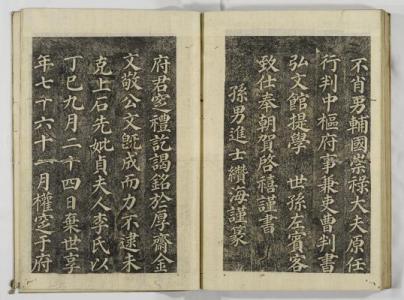 不肖男輔國崇祿大夫原任
行判中樞府事兼吏曹判書
弘文館提學 世孫左賓客
致仕奉朝賀啓禧謹書
孫男進士纘海謹篆
府君窆禮訖謁銘於厚齋金
文敬公文旣成而力不逮未
克上石先妣貞夫人李氏以
丁巳九月二十四日棄世享
年七十六十一月權窆于府